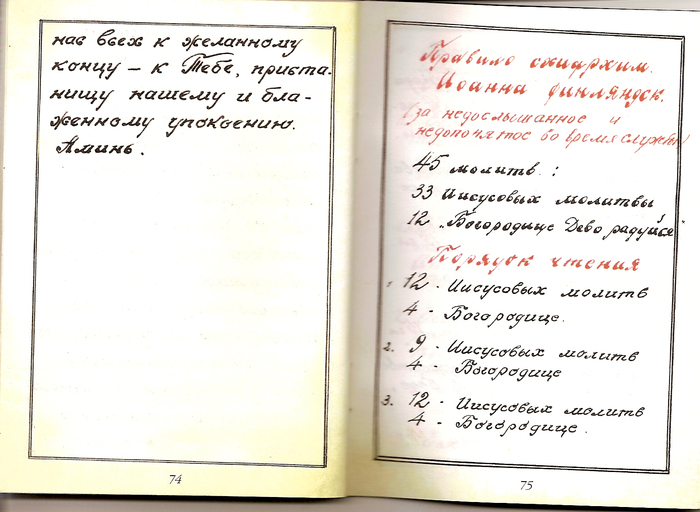 нас всех к желанному
концу – к Тебе, приста-
нищу нашему и бла-
женному упокоению.
Аминь.
74
Правило схиархим.
Иоанна финляндск.
(за недослышанное и
недопонятое во время службы)
45 молитв :
33 Иисусовых молитвы
12 „Богородице Дево радуйся"
Порядок чтения
1. 12 - Иисусовых молитв
4 - Богородице.
2. 9 - Иисусовых молитв
4 - Богородице
3. 12 - Иисусовых молитв
4 - Богородице.
75